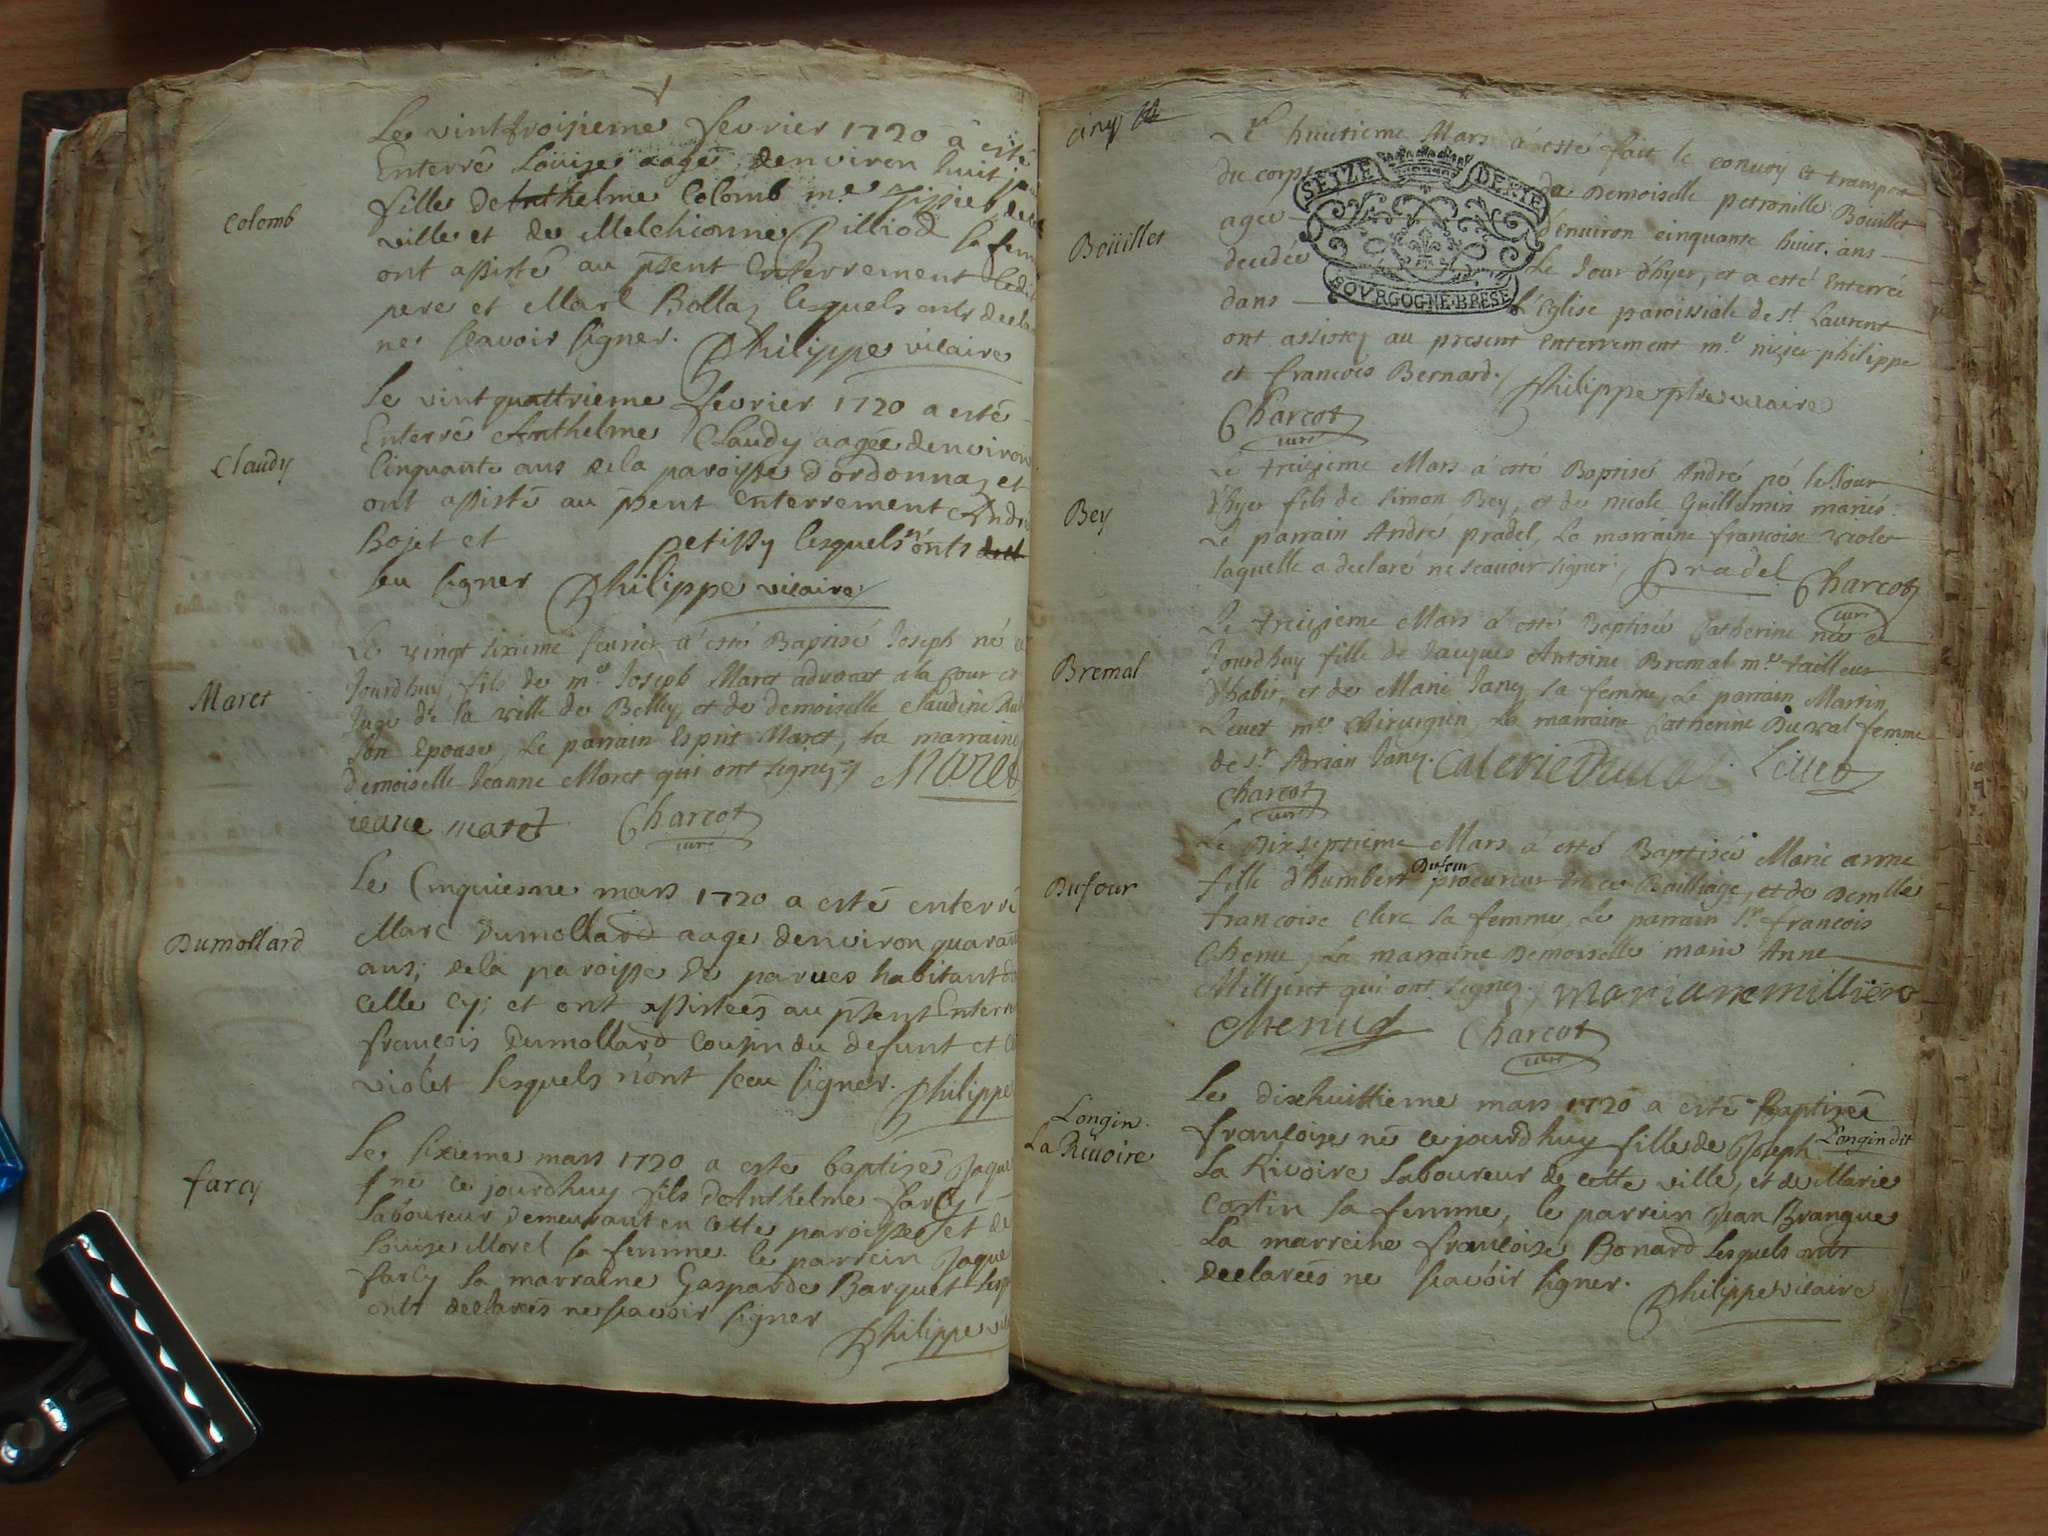 Le vinttroisieme fevrier 1720 a esté
Enterré Loüise aagé denviron huit
Colomb
fille de Anthelme Colomb m.e
ville et de Melchionne Billiod sa fem
ont assisté au pñent Enterrement ledit
pere et Marc Bollaz lesquels onts decla
né scavoir signer. Philippe vicaire
Le vintquattrieme fevrier 1720 a esté
Enterré Anthelme Claudy aagée denviron
Claudy
Cinquante ans de la paroisse d'ordonnaz et
ont assisté au pñent Enterrement André
Bojet et petissy lesquels n'onts
seu signer Philippe vicaire
Le vingt sixieme fevrier a esté Baptisé Joseph né ce
Jourdhuy, fils de m.e Joseph Maret advocat a la Cour et
Maret
Juge de la ville de Belley, et de demoiselle Claudine
son Epouse, Le parrain Esprit Maret, la marraine
demoiselle Jeanne Maret qui ont signez Maret
jeanne maret Charcot
curé
Le Cinquiesme mars 1720 a esté enterré
Marc Dumollard aage denviron quarant
Dumollard
ans; de la paroisse de parves habitant
celle cy; et ont assistées au pñent Enterre
francois Dumollard Cousin du defunt et
violet lesquels n'ont sceu signer. Philippe
Le sixieme mars 1720 a esté baptizé Jaque
né ce jourdhuy fils d'Anthelme farcy
farcy
Laboureur Demeurant en cette paroisse et de
Loüise Morel sa femme. le parrein Jaque
farcy la marraine Gasparde Barquet lesq
onts declarés ne scavoir signer
Philippe
cinq
Le huitieme Mars a esté fait le convoy et transport
du corps de Demoiselle petronille Boüillet
SEIZE DENIE
BOVRGOGNE·BRESE
Boüillet
agée d'environ cinquante huit ans
decedée Le Jour d'hyer, et a esté Enterrée
dans L'Eglise paroissiale de St. Laurent
ont assistez au present Enterrement m.e nizier philippe
et francois Bernard. Philippe ptre vicaire
Charcot
curé
Le treizieme Mars a esté Baptisé André né le Jour
Bey
d'hyer fils de Simon Bey, et de nicole Guillemin mariés.
Le parrain André pradel, La marraine francoise violet
laquelle a declaré ne scavoir signer, Pradel Charcot
curé
Le treizieme Mars a esté Baptisée Catherine née ce
Bremal
Jourdhuy fille de Jacques Antoine Bremal m.e tailleur
d'habit, et de Marie Jany sa femme, Le parrain Martin
Levet m.e chirurgien, La marraine Catherine Duval femme
de sr. Brian Jany. Levet
Charcot
curé
Le Dixseptieme Mars a esté Baptisée Marie anne
Dufour
Dufour
fille d'humbert procureur en ce Bailliage, et de Demlle
francoise Clerc sa femme, Le parrain Sr. francois
Chenu, La marraine Demoiselle marie Anne
Millient qui ont signez. marianemillient
Chenu Charcot
curé
Le dixhuittieme mars 1720 a esté Baptizéé
Longin.
La Rivoire
francoise né ce jourdhuy fille de Joseph Longin dit
La Rivoire Laboureur de cette ville, et de Marie
Cartin sa femme, le parrein Jean Brangue
La marreine francoise Bonard lesquels onts
declarées ne scavoir signer. Philippe vicaire